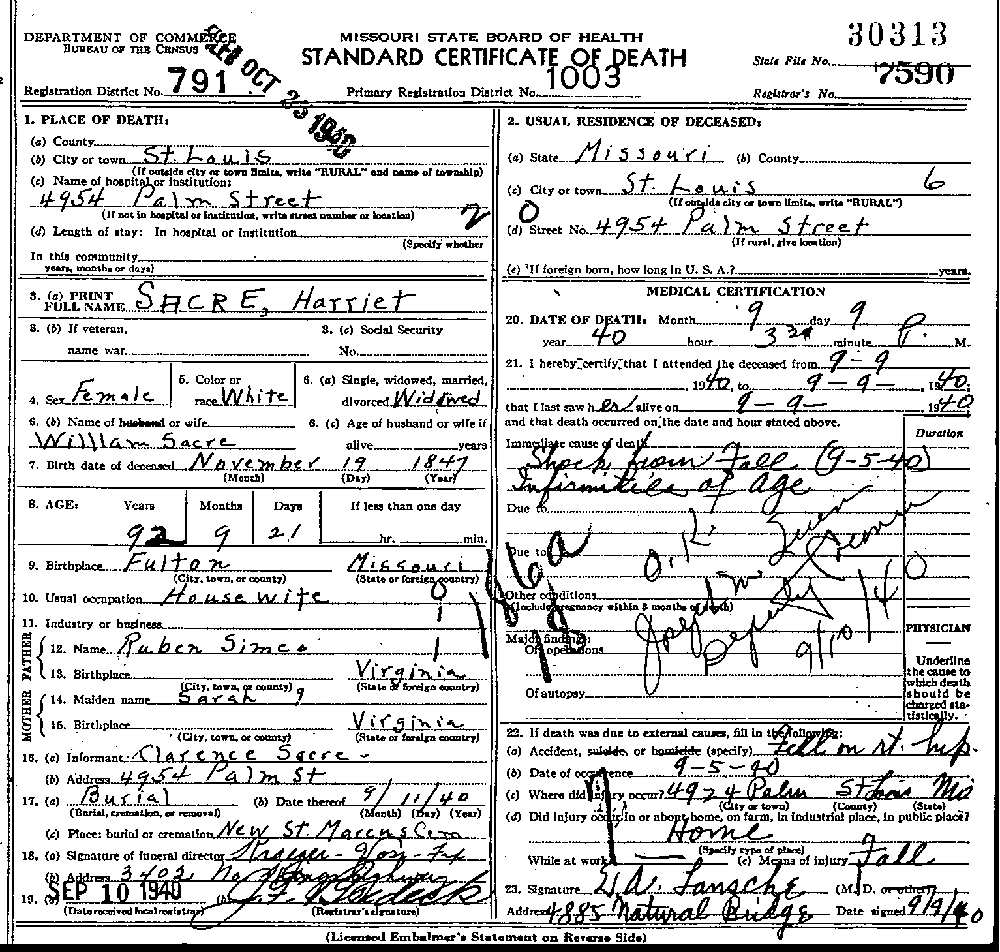 DEPARTMENT OF COMMERCE
BUREAU OF THE CENSUS
OCT 23 1940
MISSOURI STATE BOARD OF HEALTH
STANDARD CERTIFICATE OF DEATH
30313
State File No. 7590
Registrar's No.
Registration District No. 791
Primary Registration District No. 1003
1. PLACE OF DEATH:
(a) County
(b) City or town St. Louis
(If outside city or town limits, write "RURAL" and name of township)
(c) Name of hospital or institution:
4954 Palm Street
(If not in hospital or institution, write street number or location)
2
(d) Length of stay: In hospital or institution
(Specify whether
In this community
years, months or days)
2. USUAL RESIDENCE OF DECEASED:
(a) State Missouri (b) County
(c) City or town St. Louis 6
(If outside city or town limits, write "RURAL")
0
(d) Street No. 4954 Palm Street
(If rural, give location)
(e) If foreign born, how long in U. S. A.? years.
3. (a) PRINT FULL NAME SACRE, Harriet
3. (b) If veteran, name war
3. (c) Social Security No.
4. Sex Female
5. Color or race White
6. (a) Single, widowed, married, divorced Widowed
6. (b) Name of husband or wife
William Sacre
6. (c) Age of husband or wife if alive years
7. Birth date of deceased November 19 1847
(Month) (Day) (Year)
8. AGE: Years Months Days If less than one day
92 9 21 hr. min.
9. Birthplace Fulton Missouri
(City, town, or county) (State or foreign country)
10. Usual occupation Housewife
11. Industry or business
FATHER
12. Name Ruben Simco
13. Birthplace Virginia
(City, town, or county) (State or foreign country)
MOTHER
14. Maiden name Sarah ?
15. Birthplace Virginia
(City, town, or county) (State or foreign country)
15. (a) Informant Clarence Sacre
(b) Address 4954 Palm St
17. (a) Burial (b) Date thereof 9/11/40
(Burial, cremation, or removal) (Month) (Day) (Year)
(c) Place: burial or cremation New St Marcus Cem
18. (a) Signature of funeral director
(b) Address 3402 No Kingshighway
19. (a) SEP 10 1940 (b)
(Date received local registrar) (Registrar's signature)
MEDICAL CERTIFICATION
20. DATE OF DEATH: Month 9 day 9
year 40 hour 3 minute P. M.
21. I hereby certify that I attended the deceased from 9-9
1940, to 9-9-, 1940;
that I last saw her alive on 9-9- 1940
and that death occurred on the date and hour stated above.
Duration
Immediate cause of death
Shock from Fall (9-5-40)
Infirmities of Age
Due to
Due to
186a
18
O.K.
Joseph M.
Deputy
9/10/40
Other conditions
(Include pregnancy within 3 months of death)
Major findings:
Of operations
Of autopsy
PHYSICIAN
Underline the cause to which death should be charged statistically.
22. If death was due to external causes, fill in the following:
(a) Accident, suicide, or homicide (specify) Fell on rt. hip
(b) Date of occurrence 9-5-40
(c) Where did injury occur? 4924 Palm St Louis Mo
(City or town) (County) (State)
(d) Did injury occur in or about home, on farm, in industrial place, in public place?
Home
(Specify type of place)
While at work (e) Means of injury Fall
23. Signature (M. D. or other)
Address 4885 Natural Bridge Date signed 9/9/40
(Licensed Embalmer's Statement on Reverse Side)